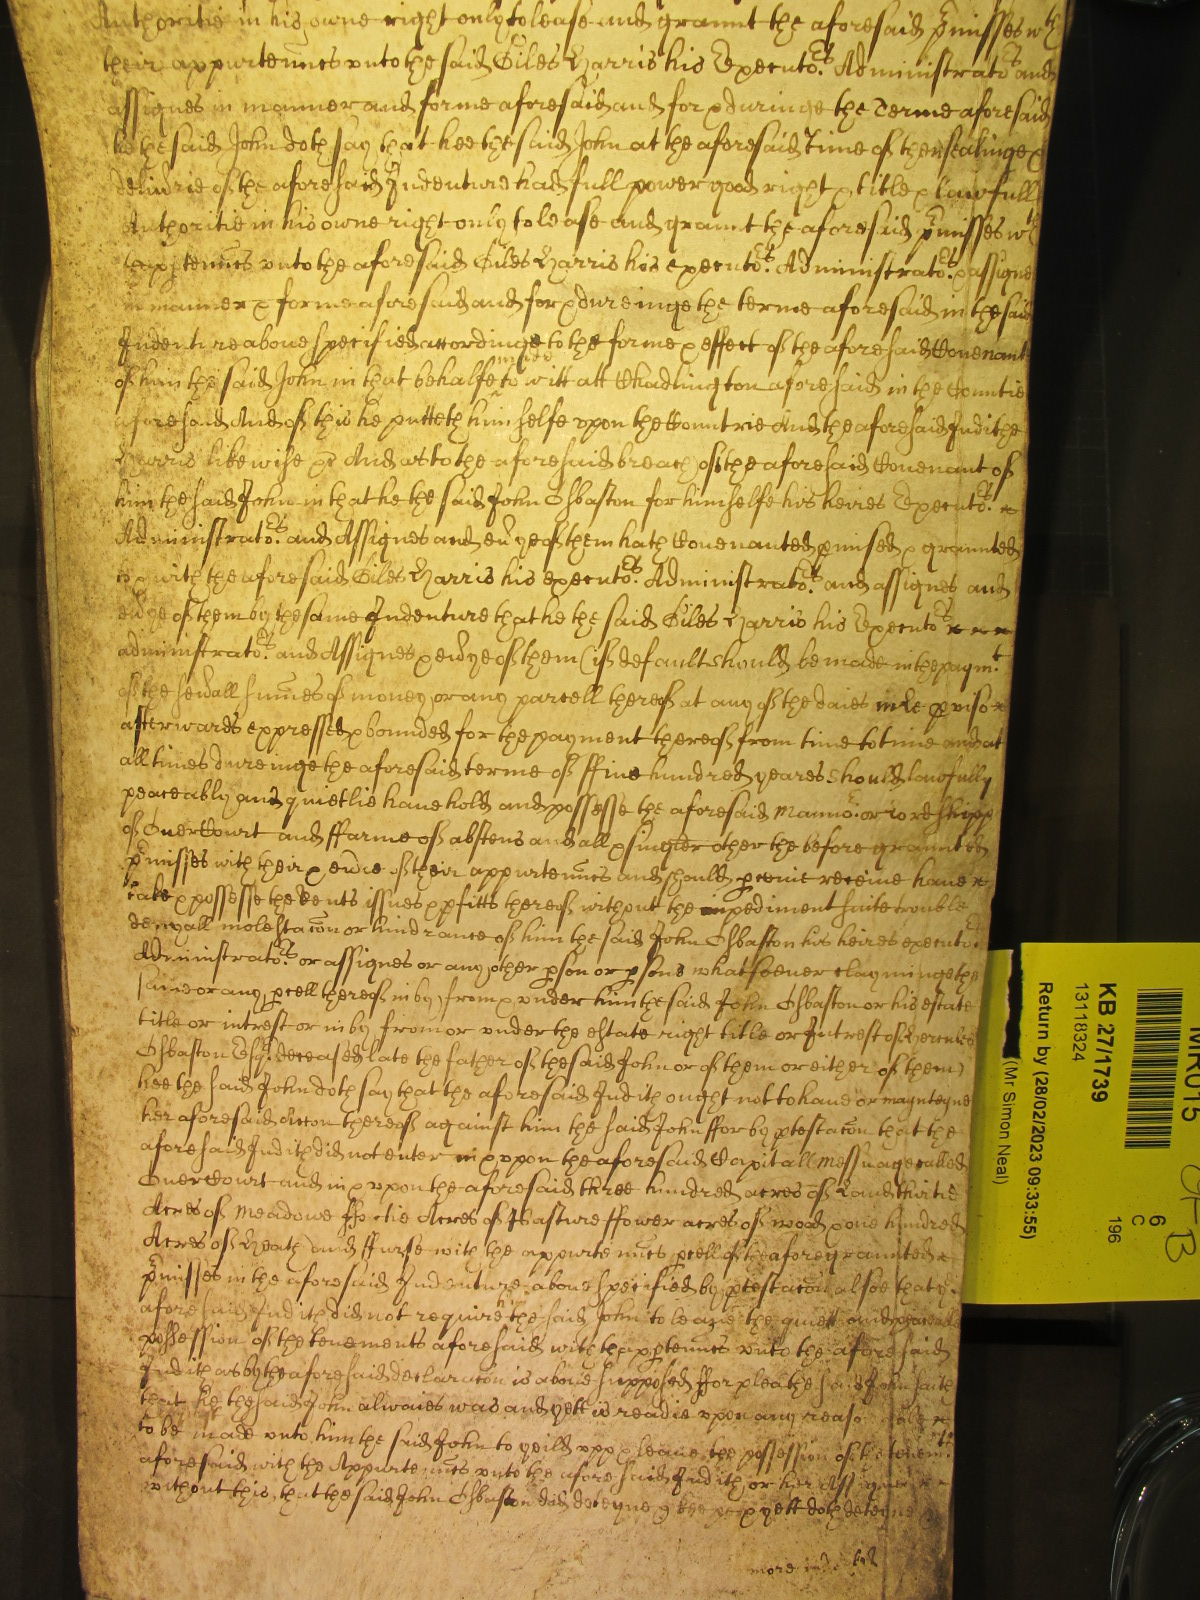 Authoritie in his owne right only to lease and graunt the aforesaid p̄misses wth
their appurtenn̄cs vnto the said Giles Harris his Executors. Administrators and
assignes in manner and forme aforesaid and for & duringe the Terme aforesaid
he the said John doth say that hee the said John at the aforesaid Time of the sealinge &
deliu̅rie of the aforesaid Indenture had full power good right & title & lawfull
Authoritie in his owne right only to lease and graunt the aforesaid p̄misses wth
thapp̱tenn̄cs vnto the aforesaid Giles Harris his executors. Administrators. & assignes
in manner & forme aforesaid and for & dureinge the terme aforesaid in the said
Indenture aboue specified accordinge to the forme & effect of the aforesaid Couenant
of him the said John in that behalfe made to witt att Chadlington aforesaid in the Countie
aforesaid And of this he putteth himselfe vpon the Countrie And the aforesaid Judithe
Harris likewise &c And as to the aforesaid breach of the aforesaid Couenant of
him the said John in that he the said John Osbaston for himselfe his heires Executors.
Administrators. and Assignes and eu̅ye of them hath Couenanted p̱mised & graunted
to & with the aforesaid Giles Harris his executors. Administrators. and assignes and
eu̅ye of them by the same Indenture that he the said Giles Harris his Executors
administrators. and Assignes & eu̅ye of them (if default should be made in the paymt.
of the seu̅all sum̄es of money or any parcell thereof at any of the daies in le p̱viso
afterwards expressed & bounded for the payment thereof from time to time and at
all times dureinge the aforesaid terme of ffiue hundred yeares should lawfully
peaceably and quietlie haue hold and possesse the aforesaid Mannor. or Lordshipp
of OuerCourt and ffarme of abstens and all & singler other the before graunted
p̄misses with their & eu̅ie of their appurtenn̄cs and should p̱ceiue receiue haue
take & possesse the Rents issues & p̱fitts thereof without the impediment suite trouble
denyall molestac̄on or hindrance of him the said John Osbaston his heires executors.
Administrators. or assignes or any other p̱son or p̱sons whatsoeuer clayminge the
same or any p̱cell thereof in by from & vnder him the said John Osbaston or his estate
title or intrest or in by from or vnder the estate right title or Intrest of Hercules
Osbaston Esqr. deceased late the father of the said John or of them or either of them)
hee the said John doth say that the aforesaid Judith ought not to haue or maynteyne
her aforesaid acc̄on thereof against him the said John ffor by p̱testac̄on that the
aforesaid Judith did not enter in & vpon the aforesaid Capitall Messuage called
OuerCourt and in & vpon the aforesaid three hundred acres of Land thirtie
Acres of Meadowe ffortie Acres of Pasture ffower acres of wood & one hundred
Acres of Heath and ffurse with the appurtenn̄cs p̱cell of the aforegraunted
p̄misses in the aforesaid Indenture aboue specified by p̱testac̄on alsoe that ye
aforesaid Judith did not require the said John to leaue the quiett and peaceable
possession of the tenements aforesaid with thapp̱tenn̄cs vnto the aforesaid
Judith as by the aforesaid declarac̄on is aboue supposed ffor plea the said John saith
that he the said John alwaies was and yett is readie vpon any
to be made vnto him the said John to yeild vpp & leaue the possession of the tenemts.
aforesaid with the Appurtenn̄cs vnto the aforesaid Judith or her Assignes
without this that the said John Osbaston did deteyne & yett doth deteyne
more
KB 27/1739
13118324
Return by (28/02/2023 09:33:55)
(Mr Simon Neal)
MR015
6
C
196